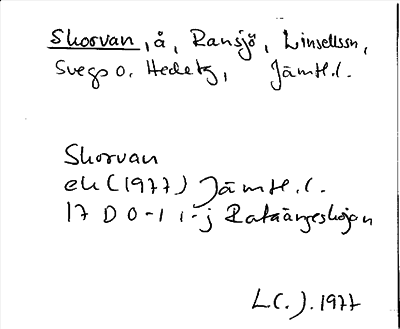 Skorvan, å, Ransjö, Linsellssn,
Svegs o. Hedetg, Jämtl.l.
Skorvan
ek (1977) Jämtl.l.
17 D 0-1 i-j Rataängeskojan
L(.). 1977